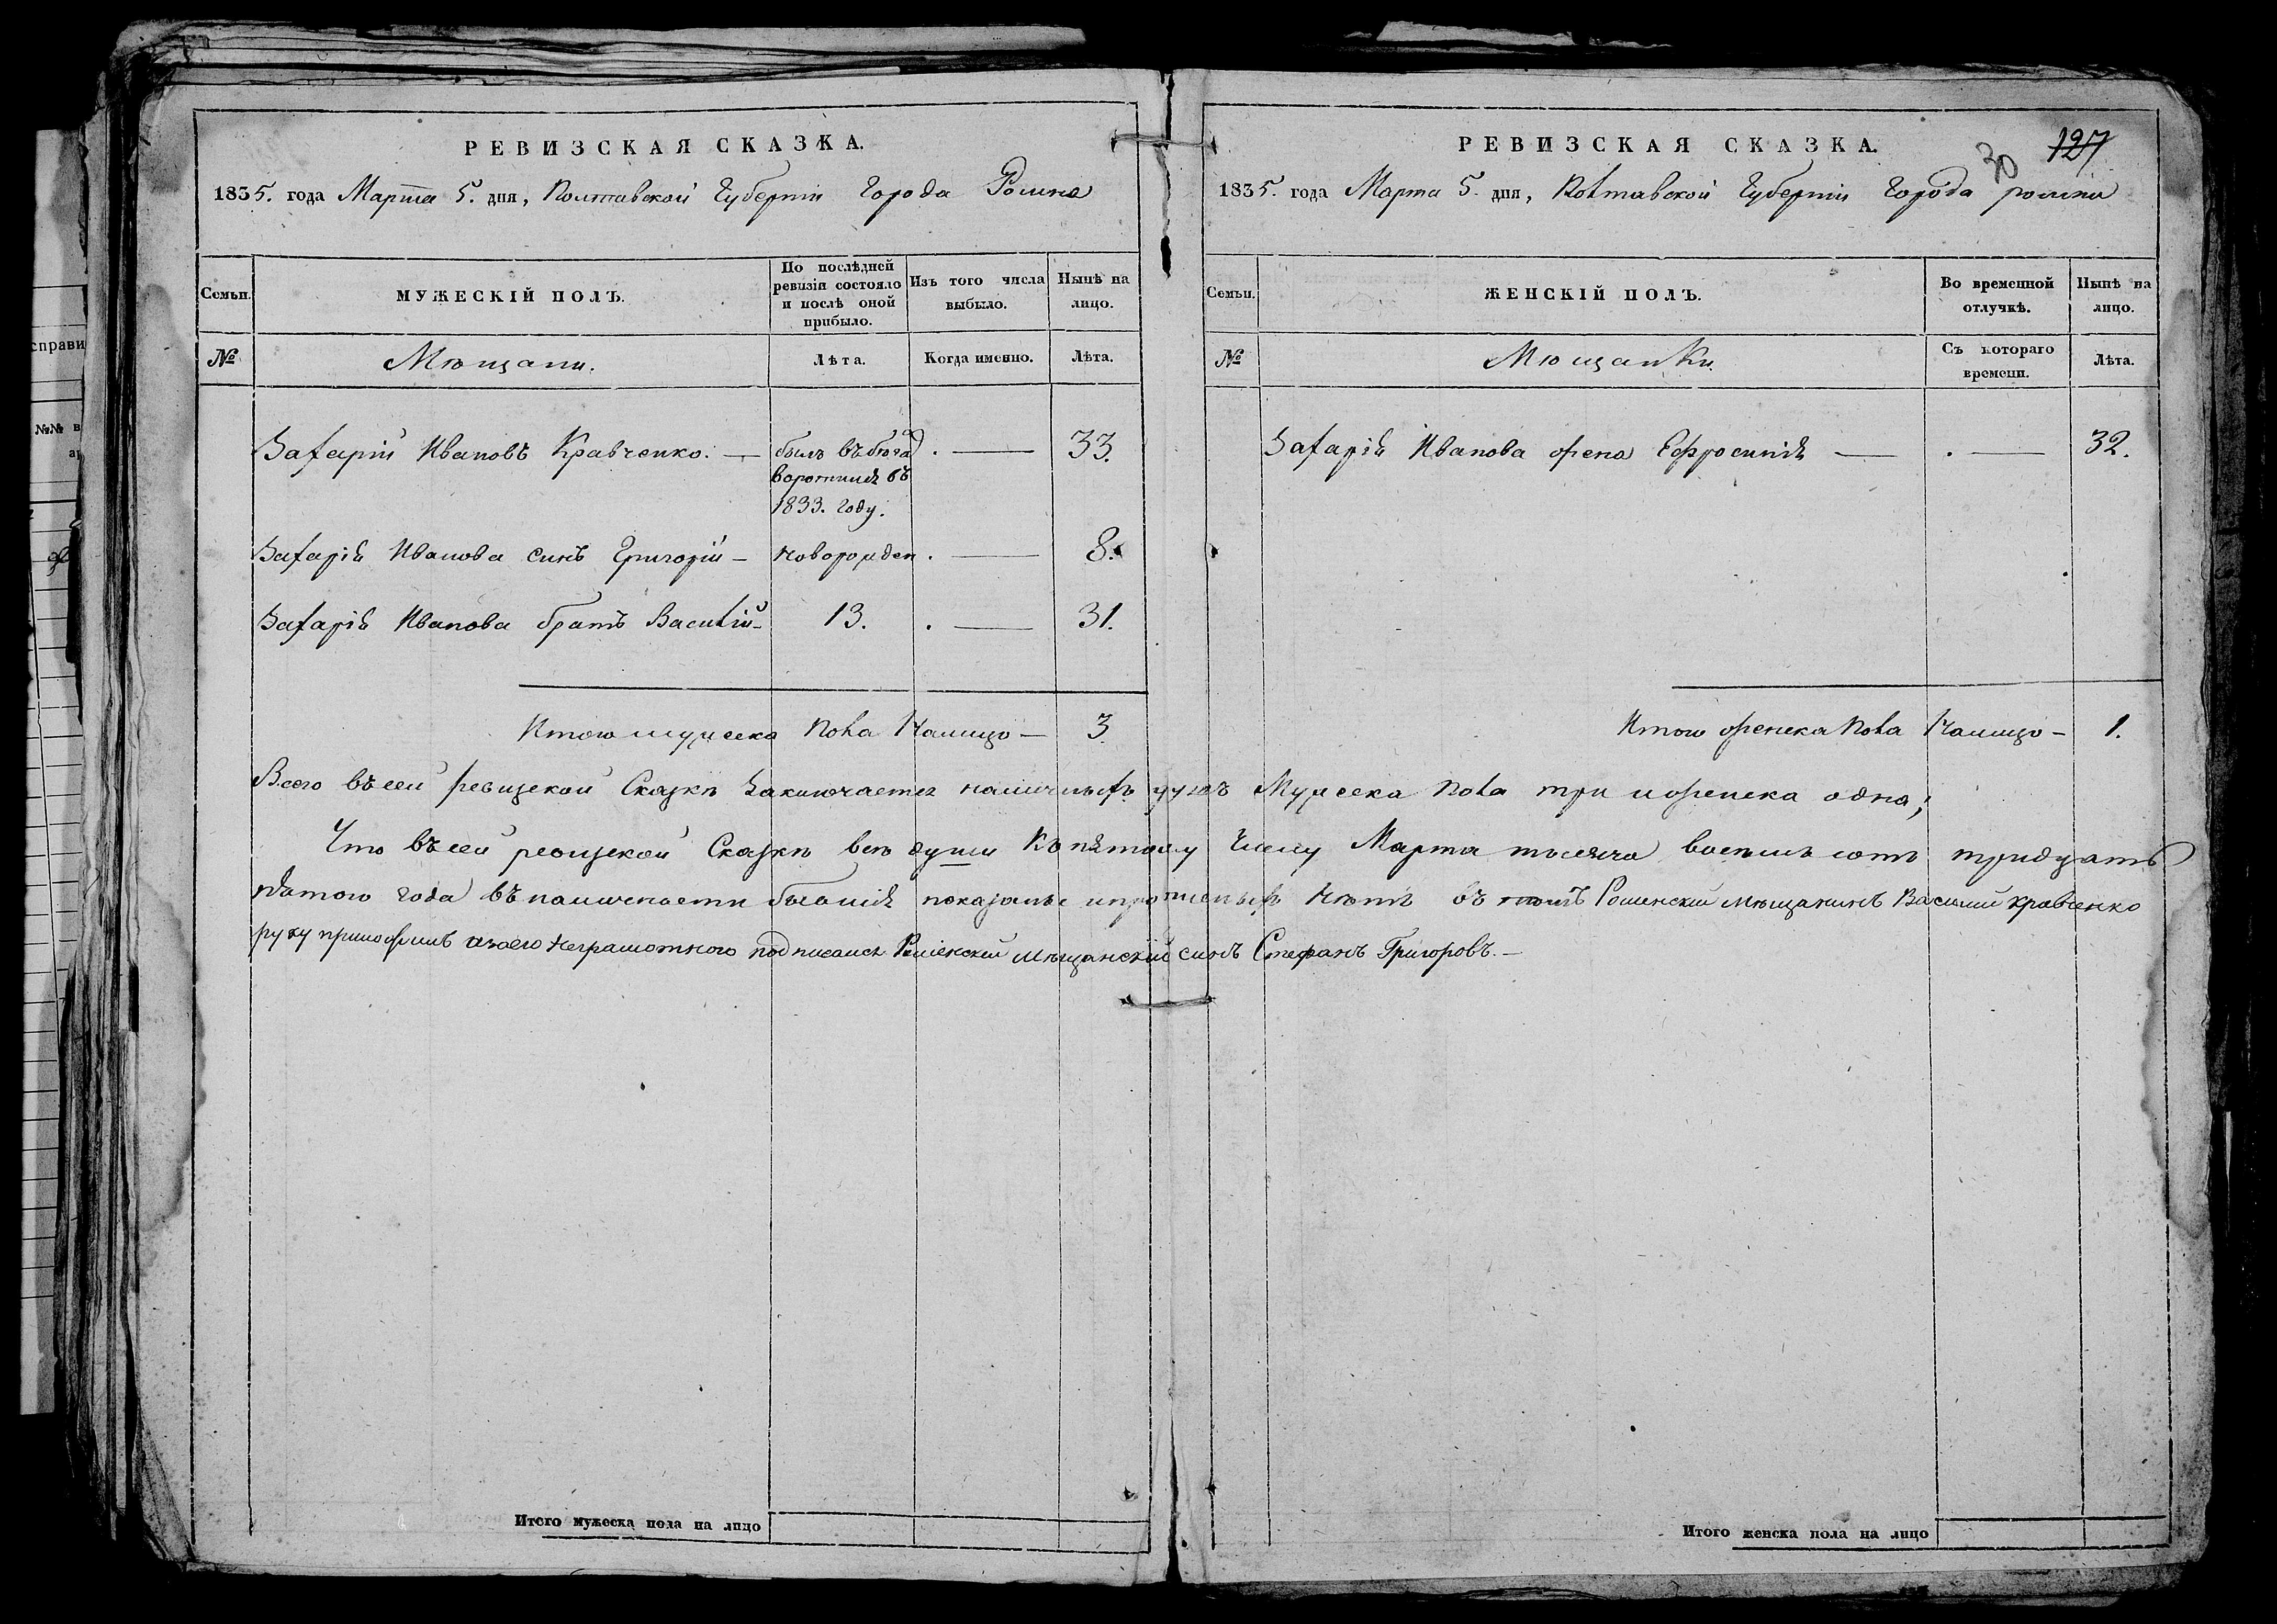 РЕВИЗСКАЯ СКАЗКА.
1835. года Марта 5. дня, Полтавской Губерніи Города Ромна
Семьи.
МУЖЕСКІЙ ПОЛЪ.
По послѣдней ревизіи состояло и послѣ оной прибыло.
Изъ того числа выбыло.
Нынѣ на лицо.
№
Мѣщани.
Лѣта.
Когда именно.
Лѣта.
Захарій Ивановъ Кравченко. — былъ въ бѣгах . — 33.
воротился въ
1833. году.
Захарія Иванова синъ Григорій — новорожден . — 8.
Захарія Иванова братъ Василій — 13. . — 31.
Итого мужеска пола Налицо — 3.
РЕВИЗСКАЯ СКАЗКА.
30 127
1835. года Марта 5. дня, Полтавской Губерніи Города ромна
Семьи.
ЖЕНСКІЙ ПОЛЪ.
Во временной отлучкѣ.
Нынѣ на лицо.
№
Мѣщанки.
Съ котораго времени.
Лѣта.
Захарія Иванова жена Ефросинія — . — 32.
Итого женска пола Налицо — 1.
Всего въ сей ревизской Сказкѣ Заключается наличныхъ душъ Мужеска пола три и женска одна;
Что въ сей ревизской Сказкѣ всѣ души Къ пятому Числу Марта тысяча восемь сотъ тридцать
пятого года въ наличности бывшія показаны и прописныхъ нѣтъ въ томъ Роменский мѣщанинъ Василий Кравченко
руку приложилъ а за его неграмотного подписался Роменский мѣщанский синъ Стефанъ Григоровъ. —
Итого мужеска пола на лицо
Итого женска пола на лицо
справи
№№ в